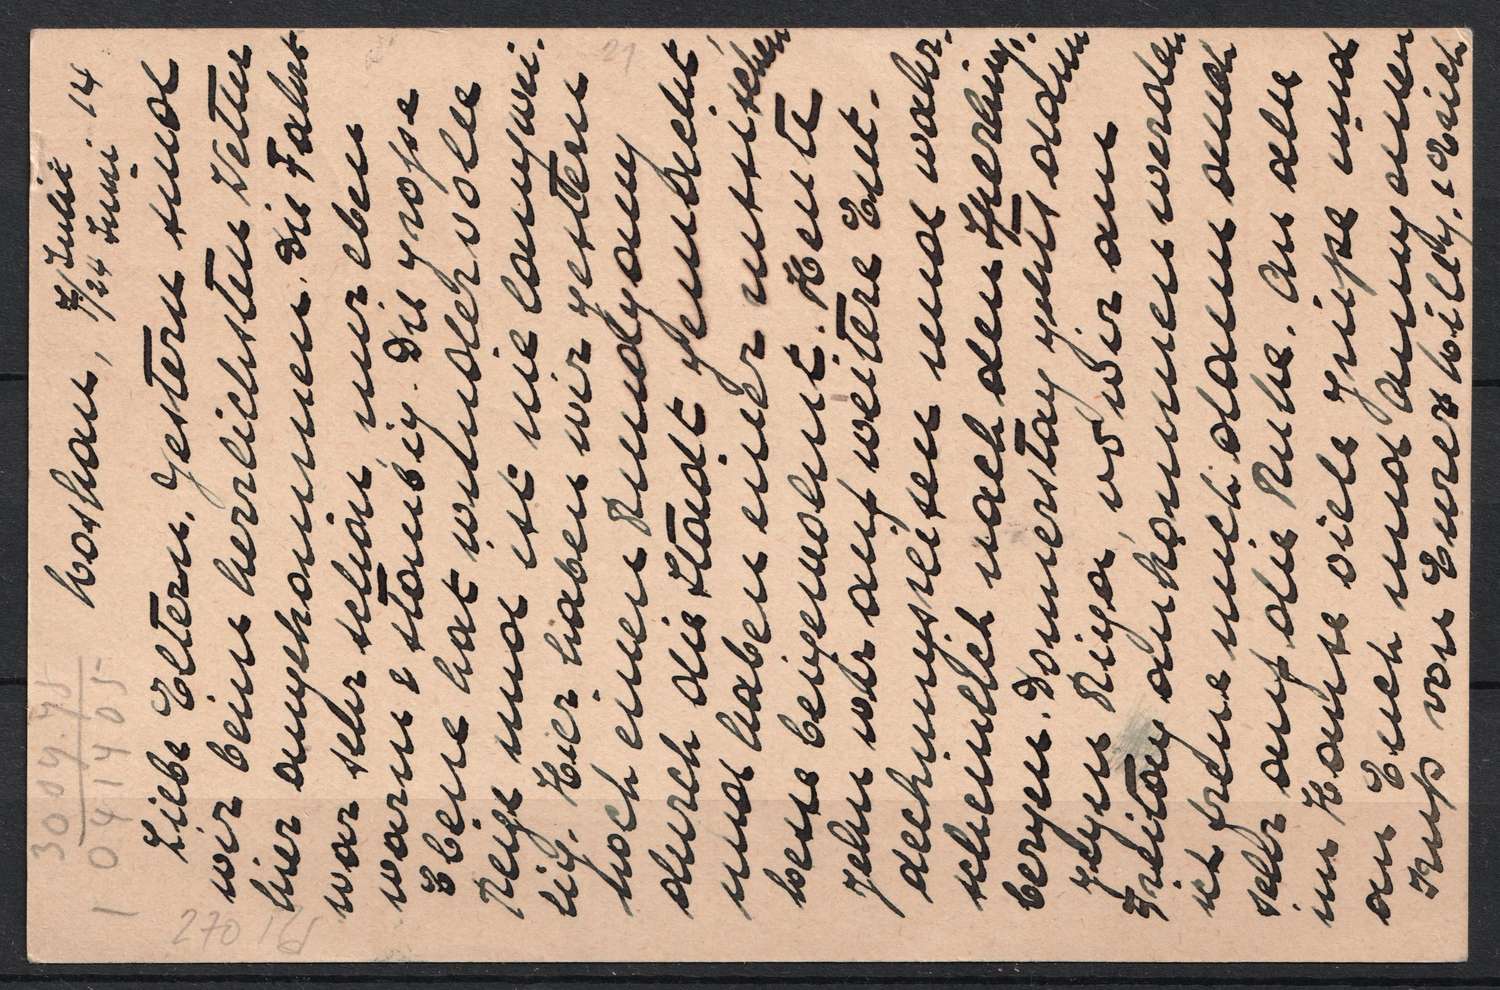 Moskau, 7/ Juli
24 Juni 14.
Liebe Eltern, Gestern sind
wir beim herrlichsten Wetter
hier angekommen. Die Fahrt
war sehr schön, nur eben
warm & staubig. Die grosse
Ebene hat wundervolle
Reize und ist nie langwei-
lig. Hier haben wir gestern
noch einen Rundgang
durch die Stadt gemacht
und haben einer russischen
beigewohnt. Heute
gehn wir auf weitere Ent-
deckungsreisen und wahr-
scheinlich nach den Sperlings-
bergen. Donnerstag gehts dann
gegen Riga, wo wir am
Freitag ankommen werden
ich freue mich dann auch
sehr auf die Ruhe. An alle
im Hause viele Grüsse und
an Euch und Anny einen
Kuss von Eurer Willy, & Erich
30 04.75
1 04 14 05
270 165
21